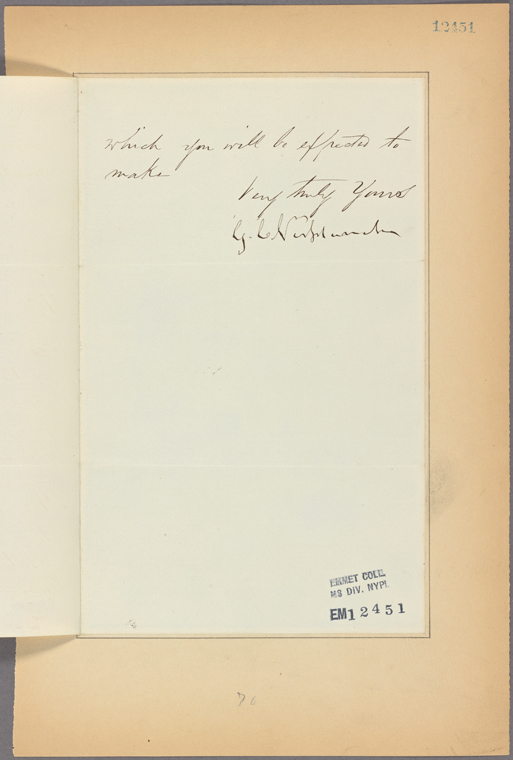 12451
which you will be expected to
make
Very truly Yours
EMMET COLL.
MS DIV. NYPL
EM12451
70